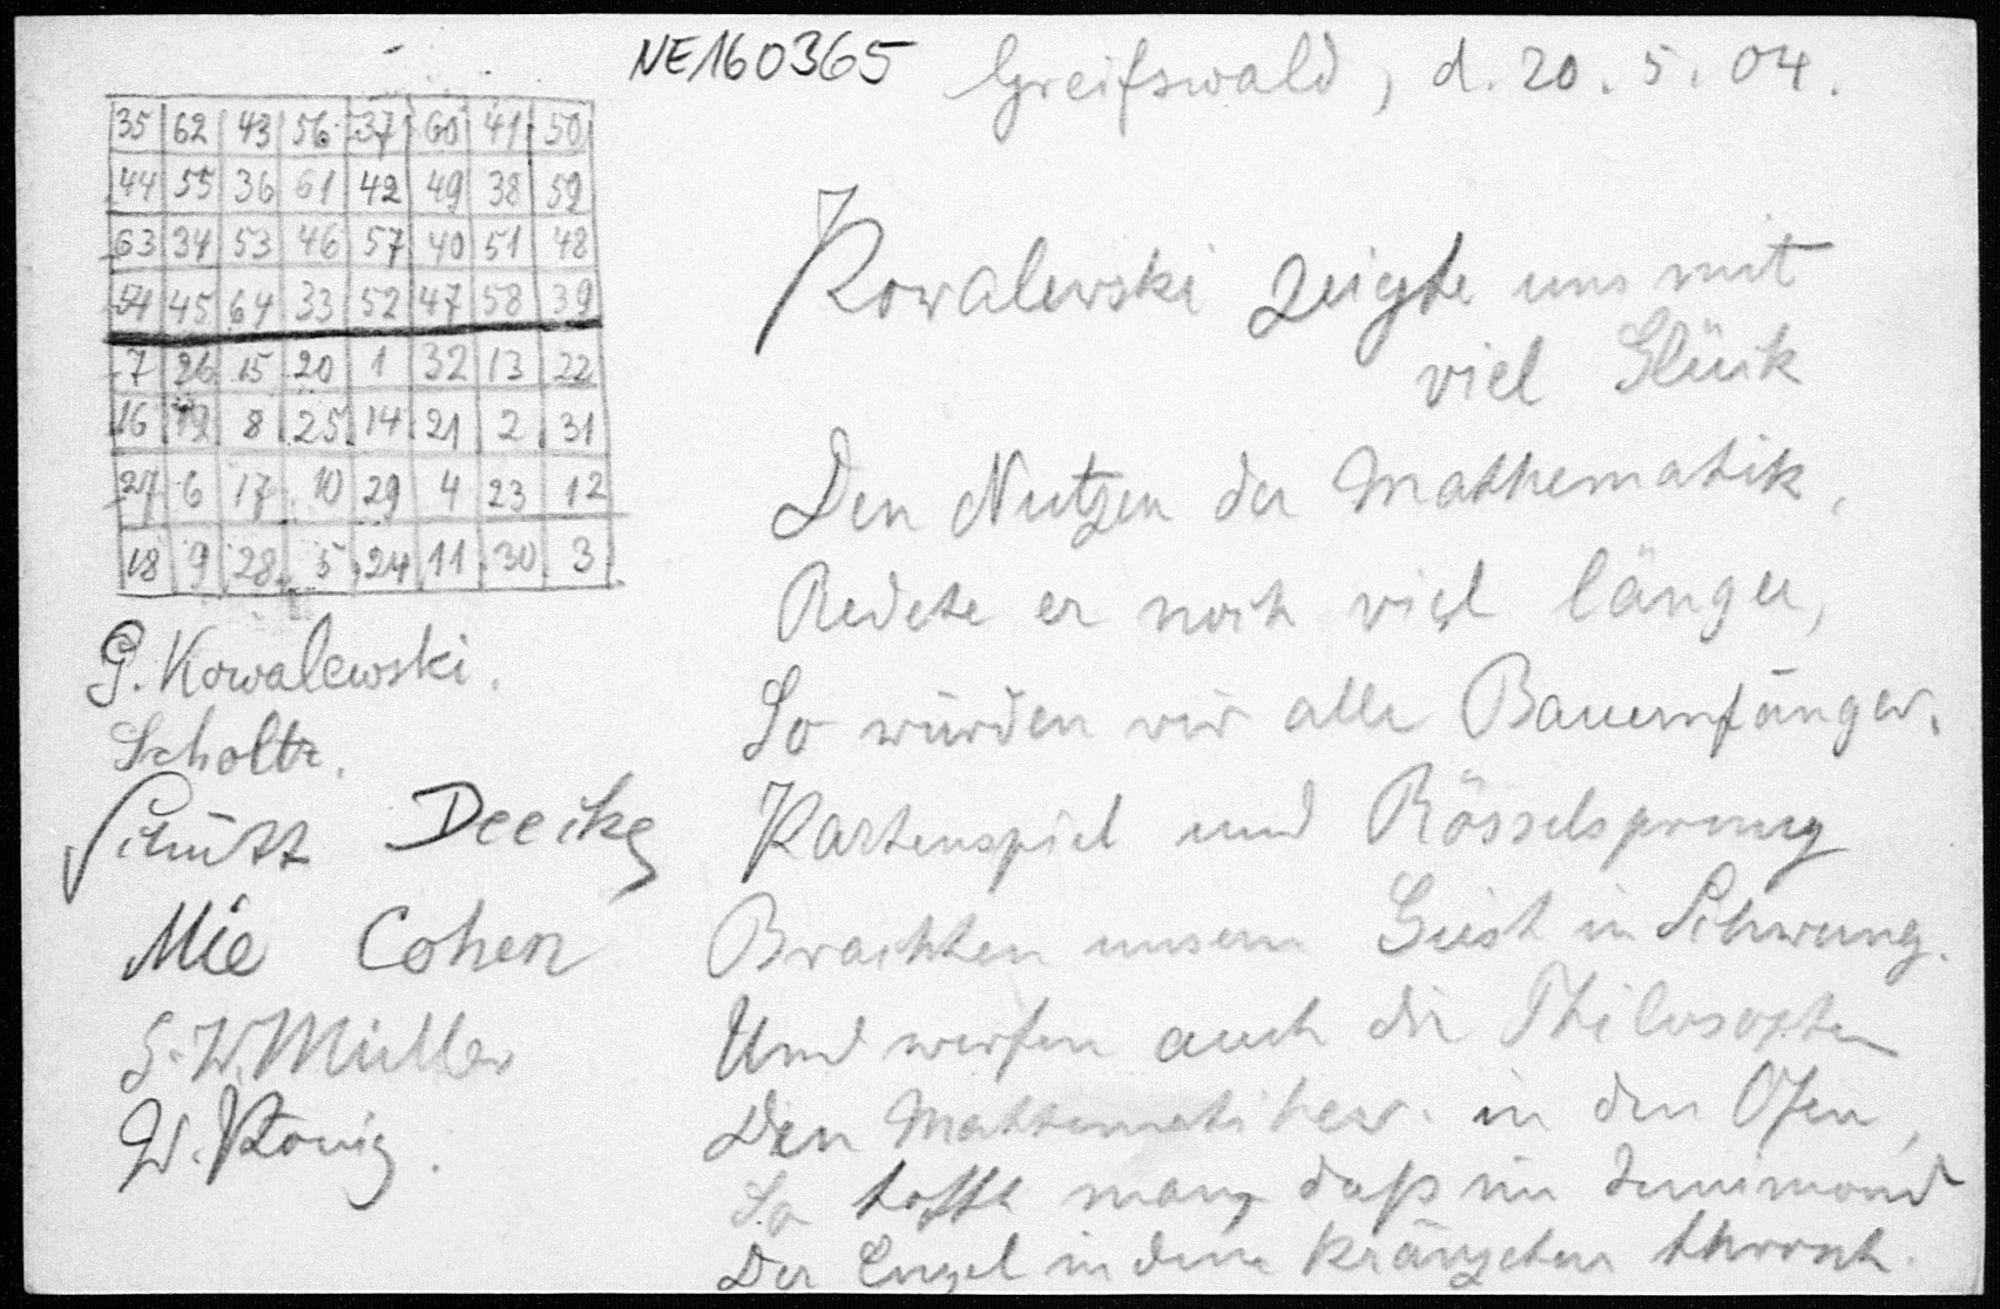 NE160365
Greifswald, d. 20. 5. 04.
35 62 43 56 37 60 41 50
44 55 36 61 42 49 38 59
63 34 53 46 57 40 51 48
54 45 64 33 52 47 58 39
7 26 15 20 1 32 13 22
16 19 8 25 14 21 2 31
27 6 17 10 29 4 23 12
18 9 28 5 24 11 30 3
G. Kowalewski.
Scholtz.
Schütt Deecke
Mie Cohen
G. W. Müller
W. König.
Kowalewski zeigte uns mit
viel Glück
Den Nutzen der Mathematik,
Redete er noch viel länger,
So würden wir alle Bauernfänger.
Kartenspiel und Rösselsprung
Brachten unsern Geist in Schwung.
Und werfen auch die Philosophen
Den Mathematiker in den Ofen,
So hofft man, daß im Junimond
Der Engel in dem Kränzchen thront.